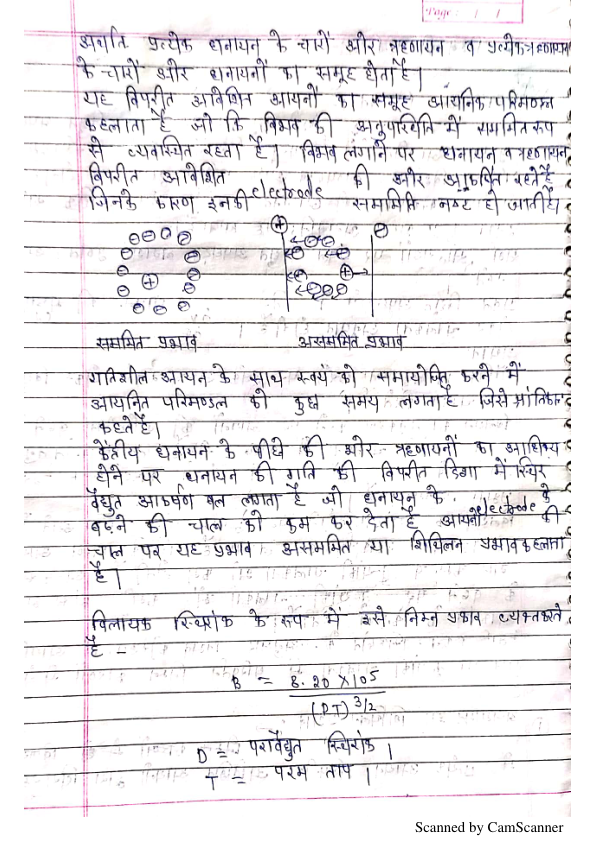 Page: / /
अर्थात प्रत्येक धनायन के चारों और ऋणायन व प्रत्येक ऋणायन
के चारों और धनायनों का समूह होता है।
यह विपरीत आवेशित आयनों का समूह आयनिक परिमण्डल
कहलाता है जो कि विभव की अनुपस्थिति में सममित रूप
से व्यवस्थित रहता है। विभव लगाने पर धनायन व ऋणायन
विपरीत आवेशित electrode की और आकर्षित रहते है
जिनके कारण इनकी सममिति नष्ट हो जाती है।
सममित प्रभाव असममित प्रभाव
गतिशील आयन के साथ स्वयं को समायोजित करने में
आयनित परिमण्डल को कुछ समय लगता है जिसे
कहते है।
केंद्रीय धनायन के पीछे की और ऋणायनों का आधिक्य
होने पर धनायन की गति की विपरीत दिशा में स्थिर
वैद्युत आकर्षण बल लगता है जो धनायन के electrode के
बढ़ने की चाल को कम कर देता है आयनो की
चाल पर यह प्रभाव असममित या शिथिलन प्रभाव कहलाता
है।
विलायक स्थिरांक के रूप में इसे निम्न प्रकार व्यक्त करते
है -
B = 8.20 × 105
(DT) 3/2
D = परावैद्युत स्थिरांक।
T = परम ताप।
Scanned by CamScanner